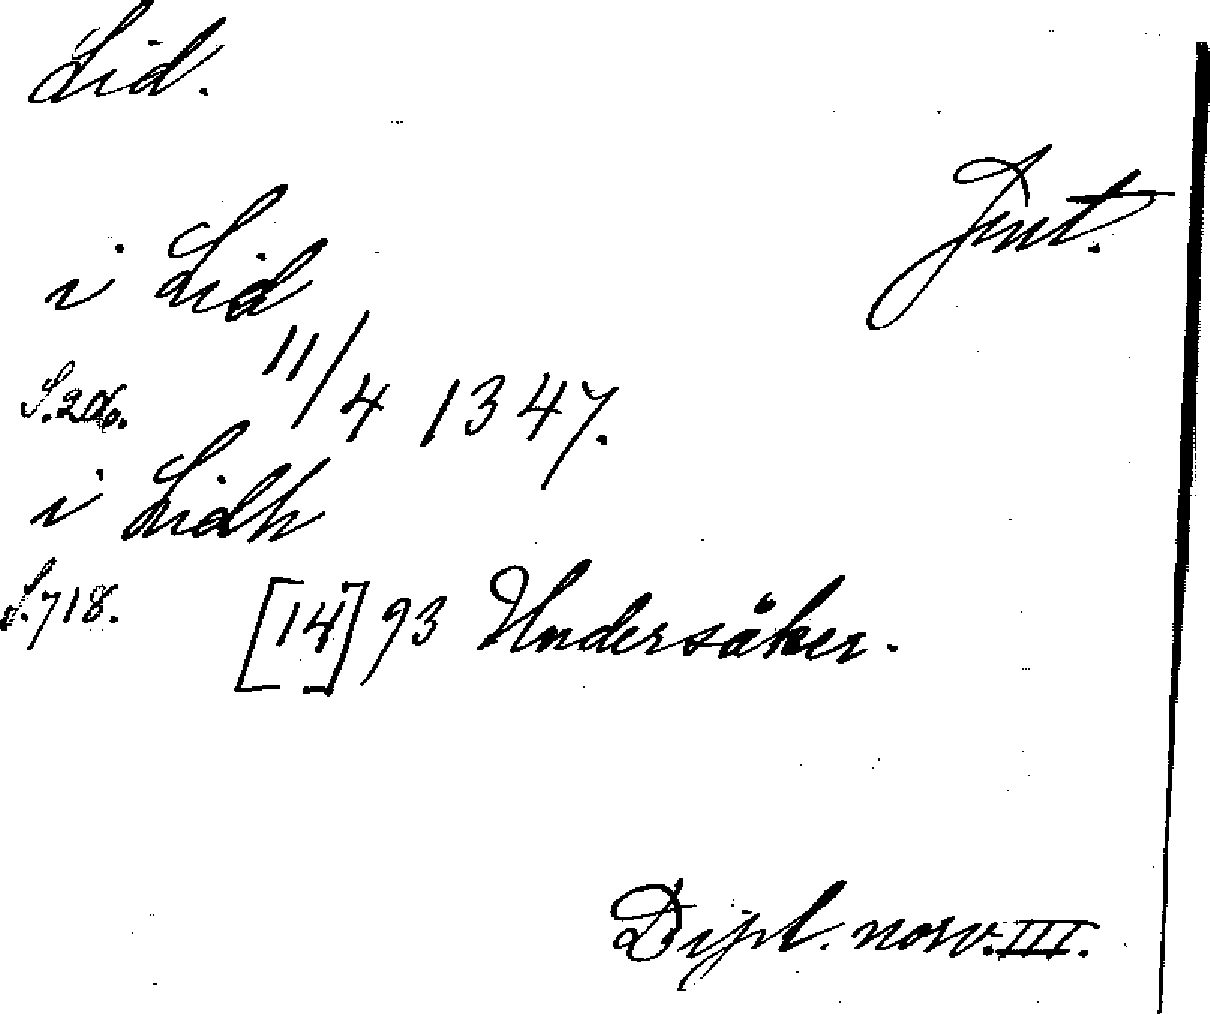 Lid.
Jmt.
i Lid
S. 206. 11/4 1347.
i Lidh
S. 718. [14]93 Undersåker.
Dipl. norv. III.